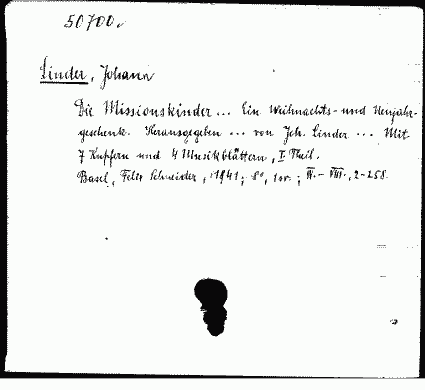 50700.
Linder, Johann
Die Missionskinder ... Ein Weihnachts- und Neujahr-
geschenk. Herausgegeben ... von Joh. Linder ... Mit
7 Kupfern und 4 Musikblättern, I. Theil.
Basel, Felix Schneider, 1841; 8°, ; IV.- VIII., 2-258.